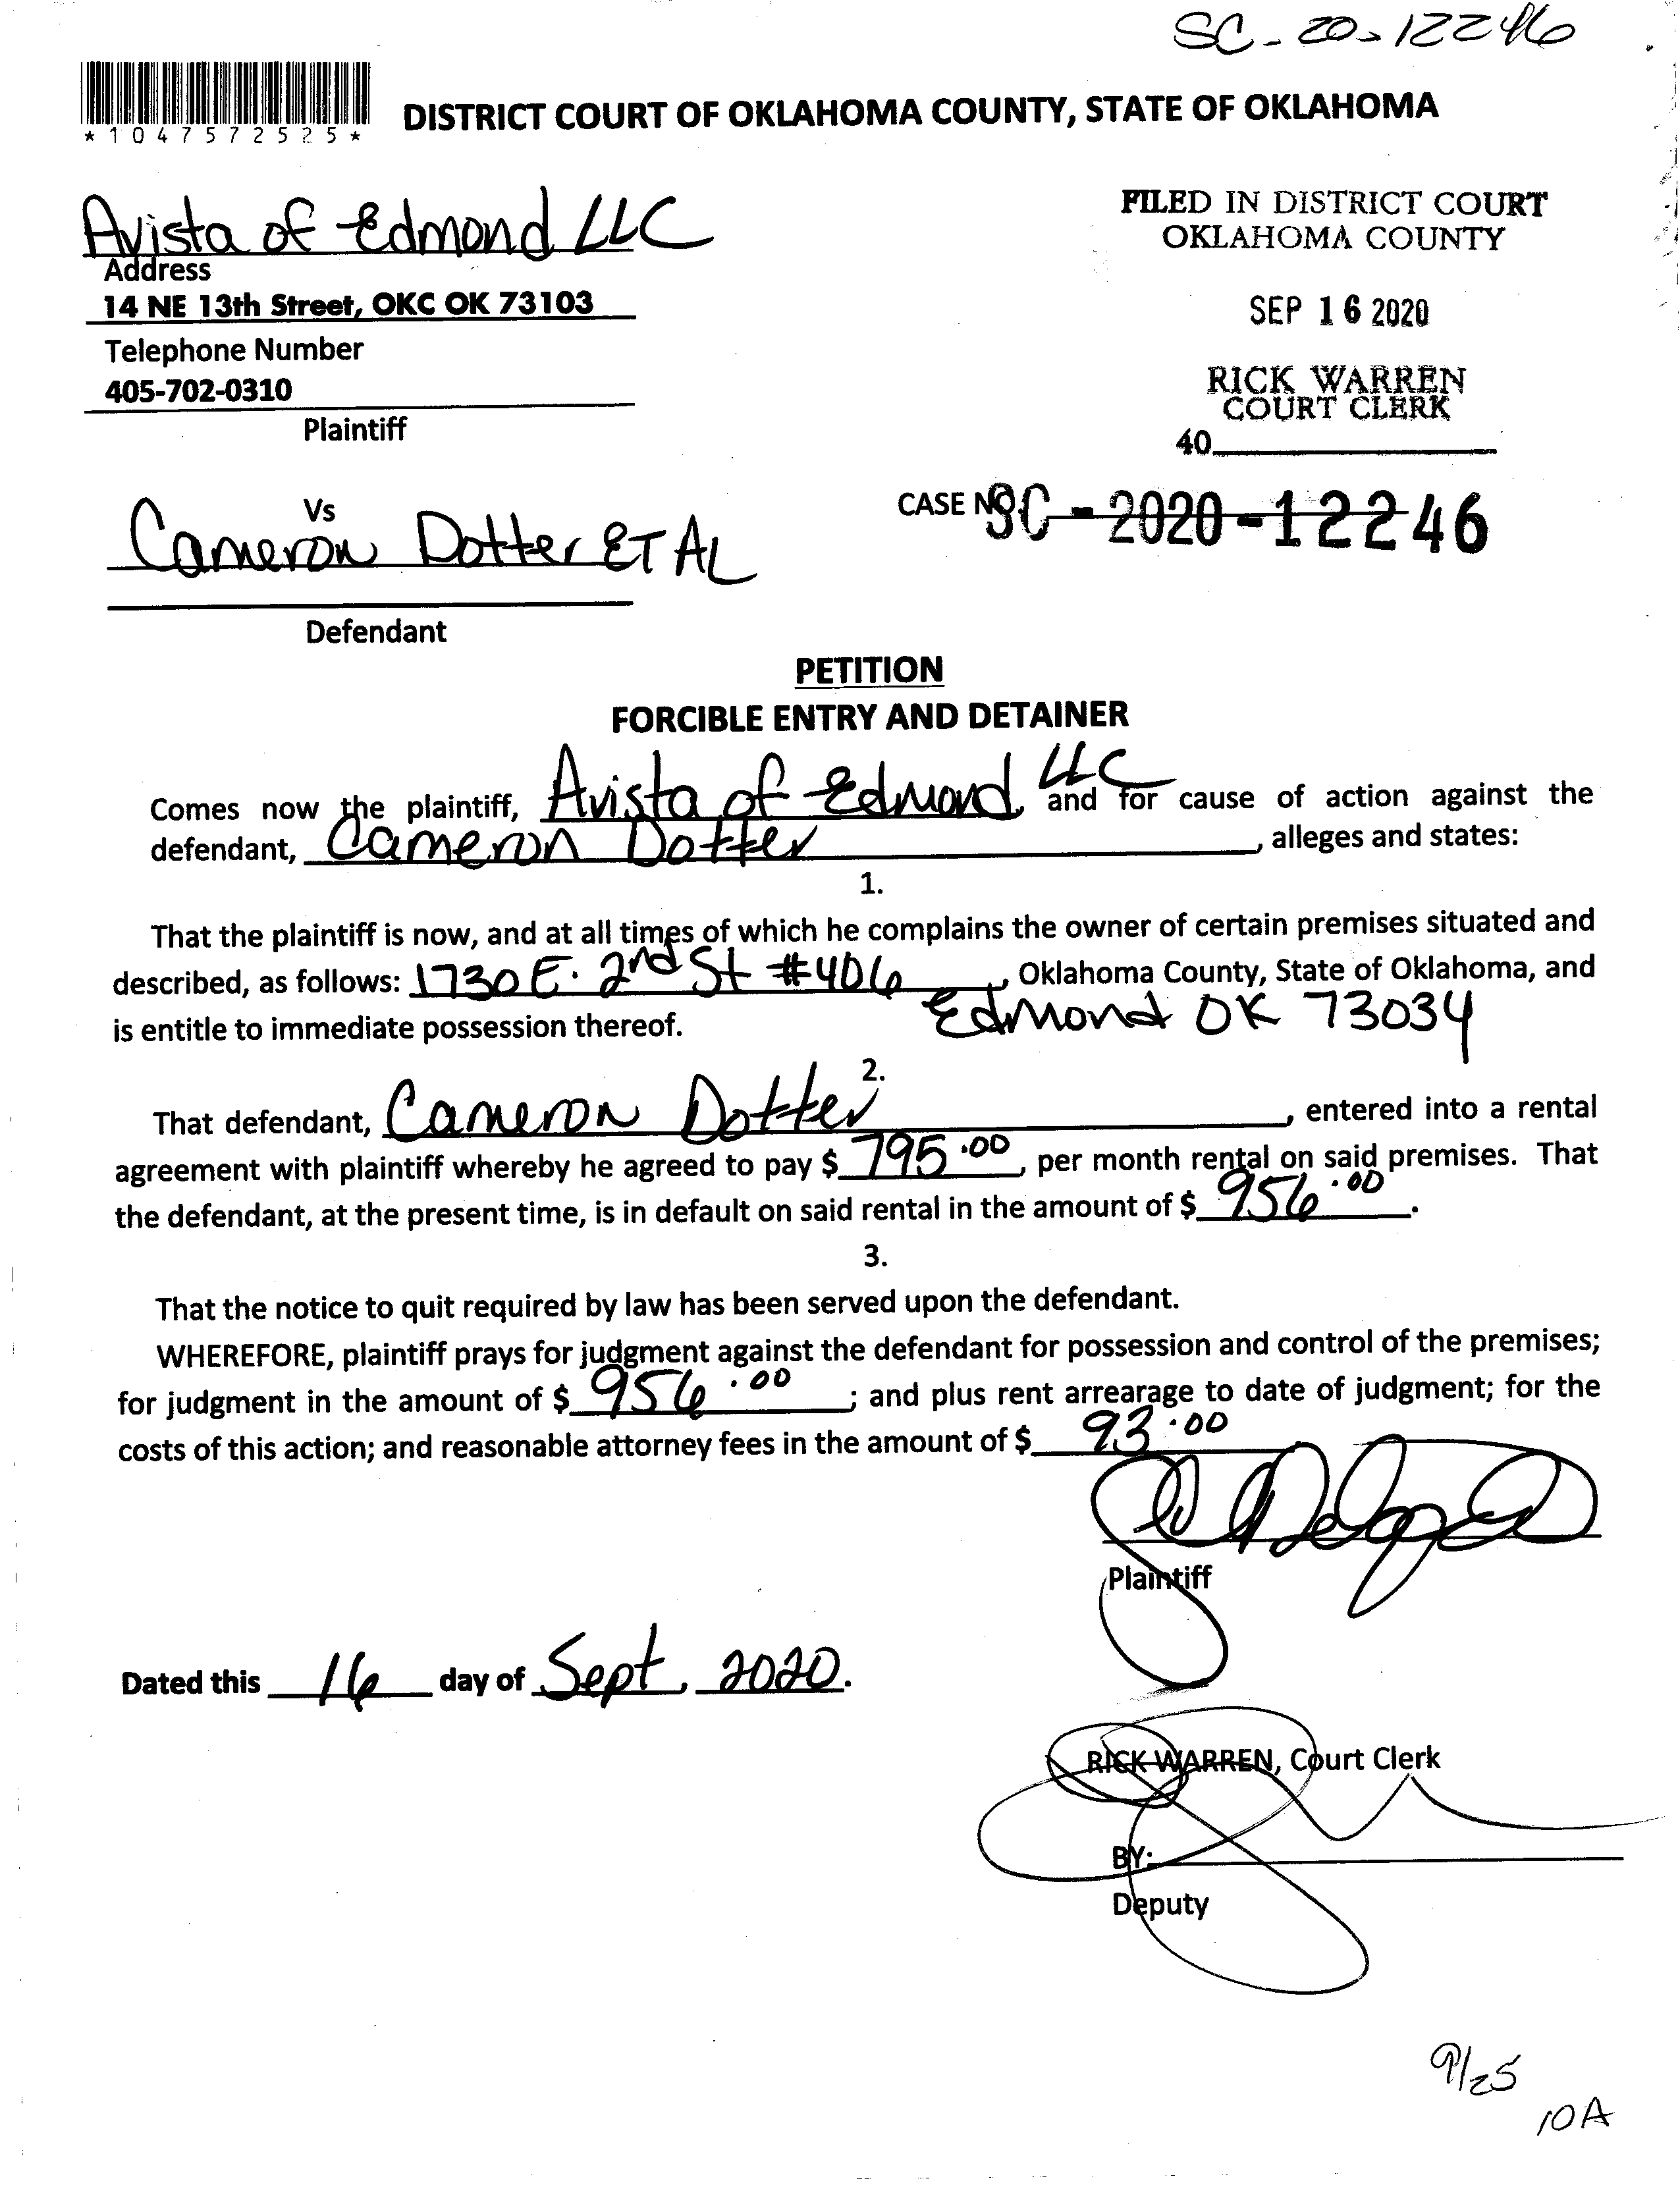 SC-20-12246
*1047572525*
DISTRICT COURT OF OKLAHOMA COUNTY, STATE OF OKLAHOMA
Avista of Edmond LLC
Address
14 NE 13th Street, OKC OK 73103
Telephone Number
405-702-0310
Plaintiff
FILED IN DISTRICT COURT
OKLAHOMA COUNTY
SEP 16 2020
RICK WARREN
COURT CLERK
40
Vs
Cameron Dotter ET AL
Defendant
CASE NO. SC-2020-12246
PETITION
FORCIBLE ENTRY AND DETAINER
Comes now the plaintiff, Avista of Edmond LLC and for cause of action against the
defendant, Cameron Dotter, alleges and states:
1.
That the plaintiff is now, and at all times of which he complains the owner of certain premises situated and
described, as follows: 1730 E. 2nd St #406, Oklahoma County, State of Oklahoma, and
is entitle to immediate possession thereof. Edmond OK 73034
2.
That defendant, Cameron Dotter, entered into a rental
agreement with plaintiff whereby he agreed to pay $ 795.00, per month rental on said premises. That
the defendant, at the present time, is in default on said rental in the amount of $ 956.00.
3.
That the notice to quit required by law has been served upon the defendant.
WHEREFORE, plaintiff prays for judgment against the defendant for possession and control of the premises;
for judgment in the amount of $ 956.00; and plus rent arrearage to date of judgment; for the
costs of this action; and reasonable attorney fees in the amount of $ 93.00
Plaintiff
Dated this 16 day of Sept, 2020.
RICK WARREN, Court Clerk
BY:
Deputy
9/25
10A